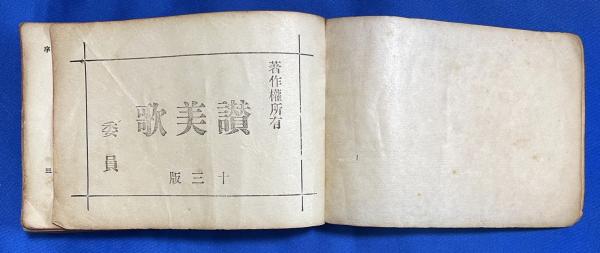 著作權所有
讃美歌
委員
十三版
序
三